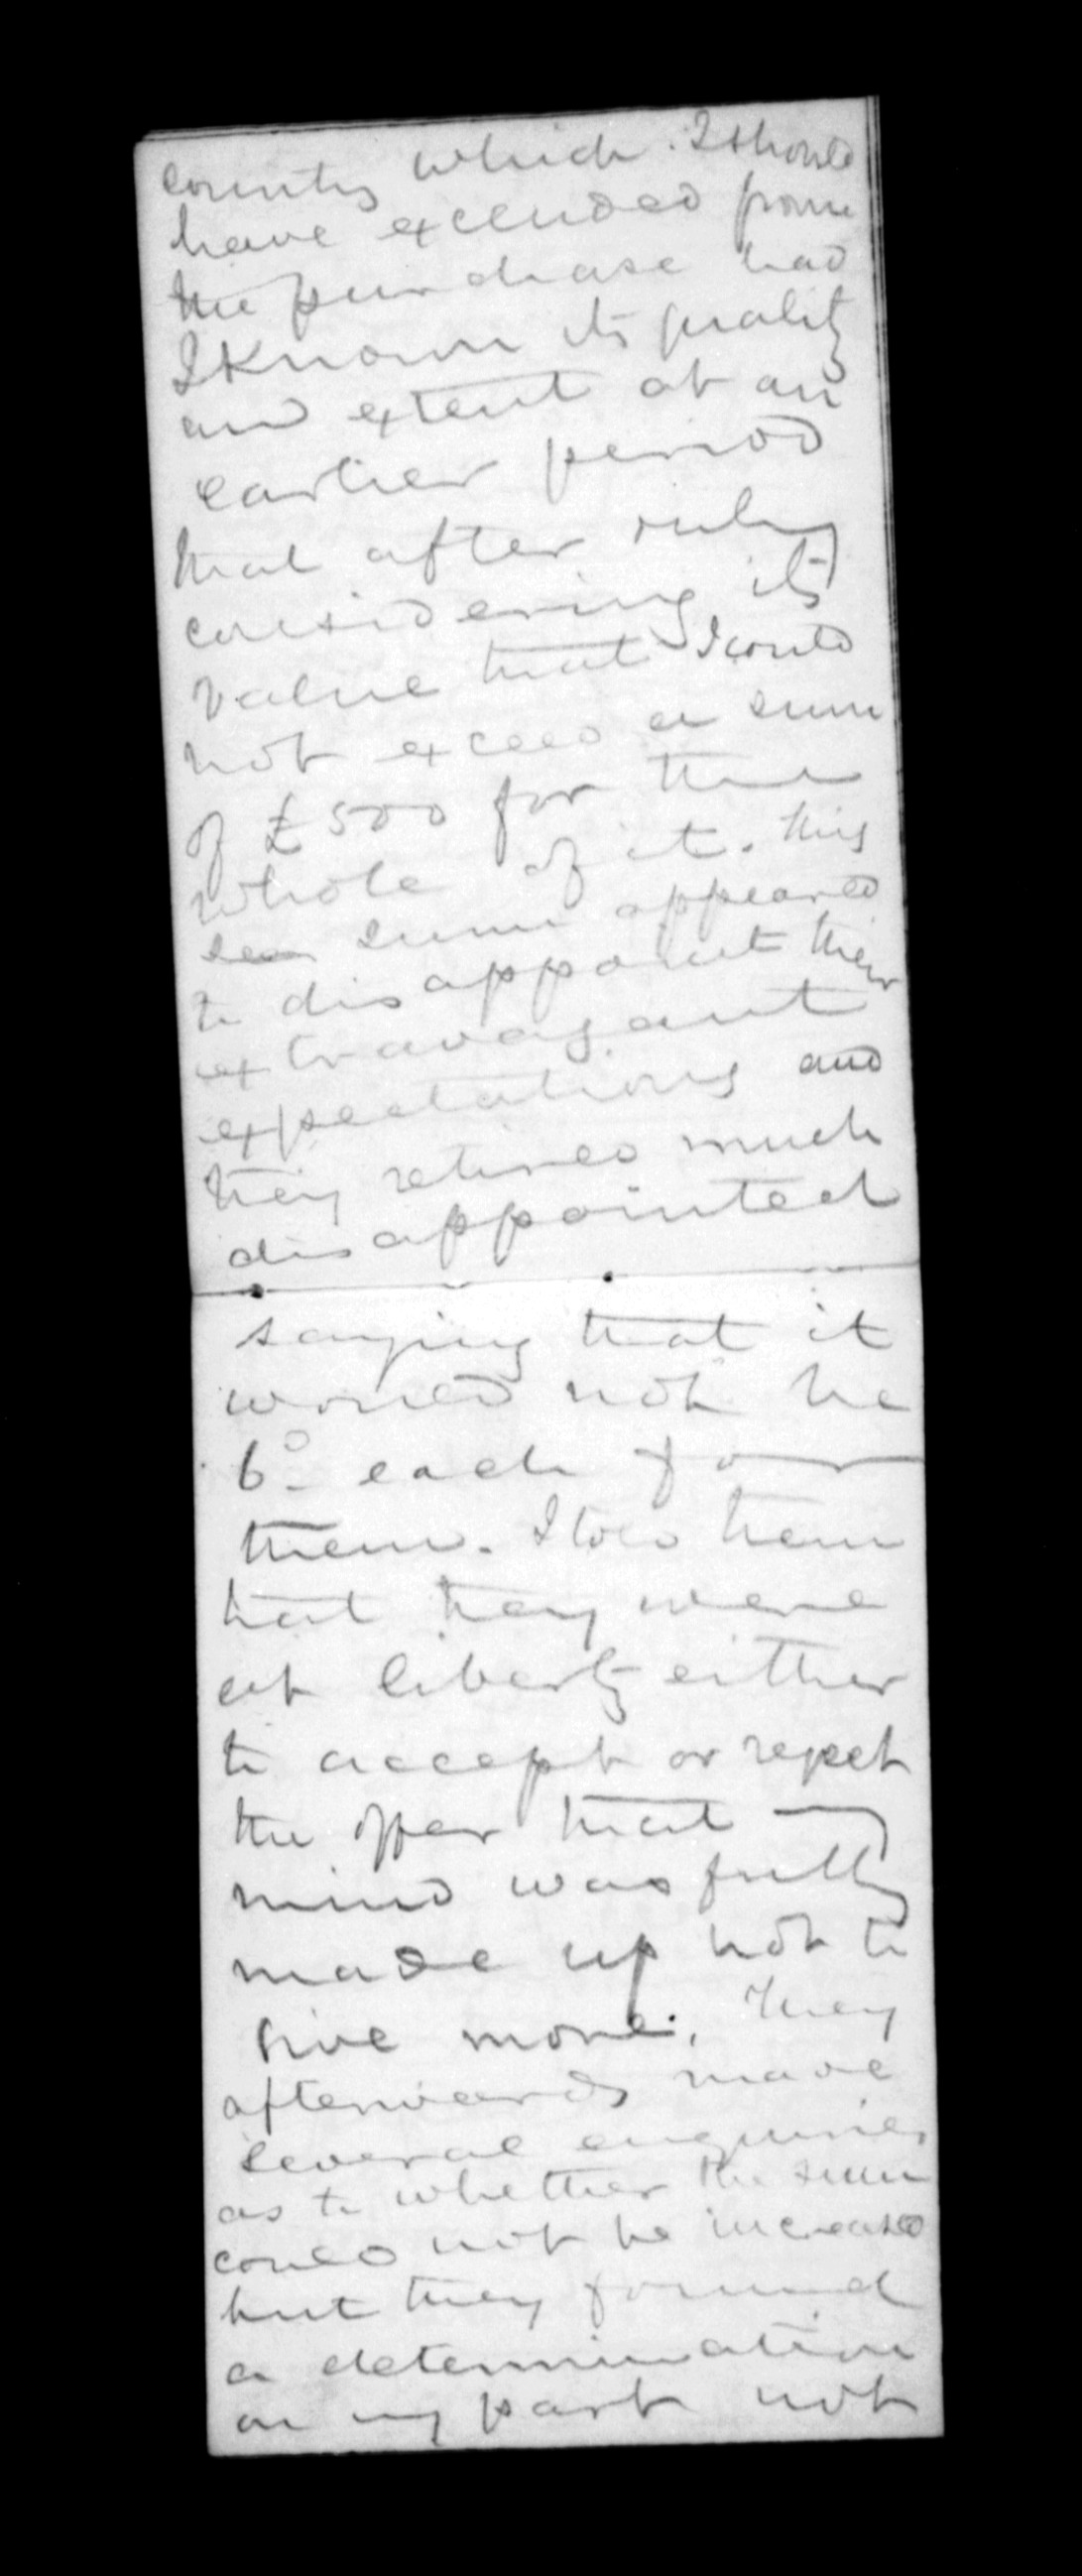 country which I should
have excluded from
the purchase had
I known its quality
and extent at an
earlier period
that after duly
considering its
value that I could
not exceed a sum
of £500 for the
whole of it. this
sum appeared
to disappoint their
extravagant
expectations and
they retired much
disappointed
saying that it
would not be
6d each for
them. I told them
that they were
at liberty either
to accept or reject
the offer that my
mind was fully
made up not to
give more. They
afterwards made
several enquiries
as to whether the sum
could not be increased
but they found
a determination
on my part not